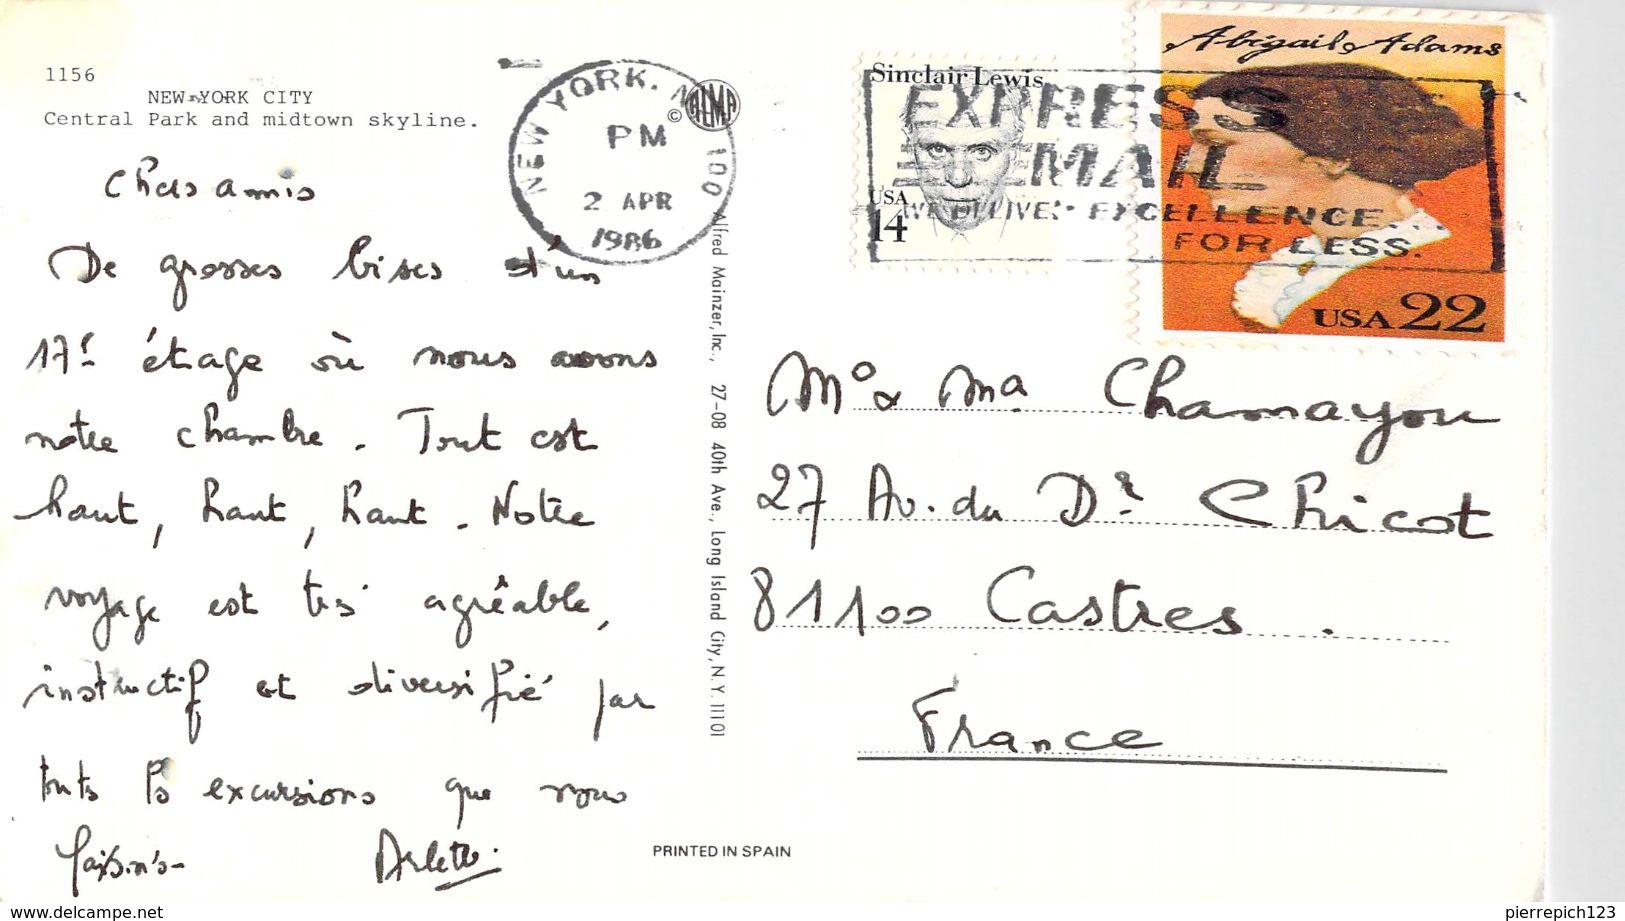 1156
NEW YORK CITY
Central Park and midtown skyline.
Chers amis
De grosses bises d'un
17e étage où nous avons
notre chambre. Tout est
haut, haut, haut. Notre
voyage est très agréable,
instructif et diversifié par
touts les excursions que nous
faisons.
Arlette
NEW YORK, N 100
PM
2 APR
1986
© ALMA
Alfred Mainzer, Inc., 27-08 40th Ave., Long Island City, N.Y. 11101
PRINTED IN SPAIN
Sinclair Lewis
USA
14
Abigail Adams
USA 22
EXPRESS
MAIL
WE DELIVER EXCELLENCE...
FOR LESS.
Mo & Ma Chamayou
27 Av. du Dr Chicot
81100 Castres.
France
pierrepich123